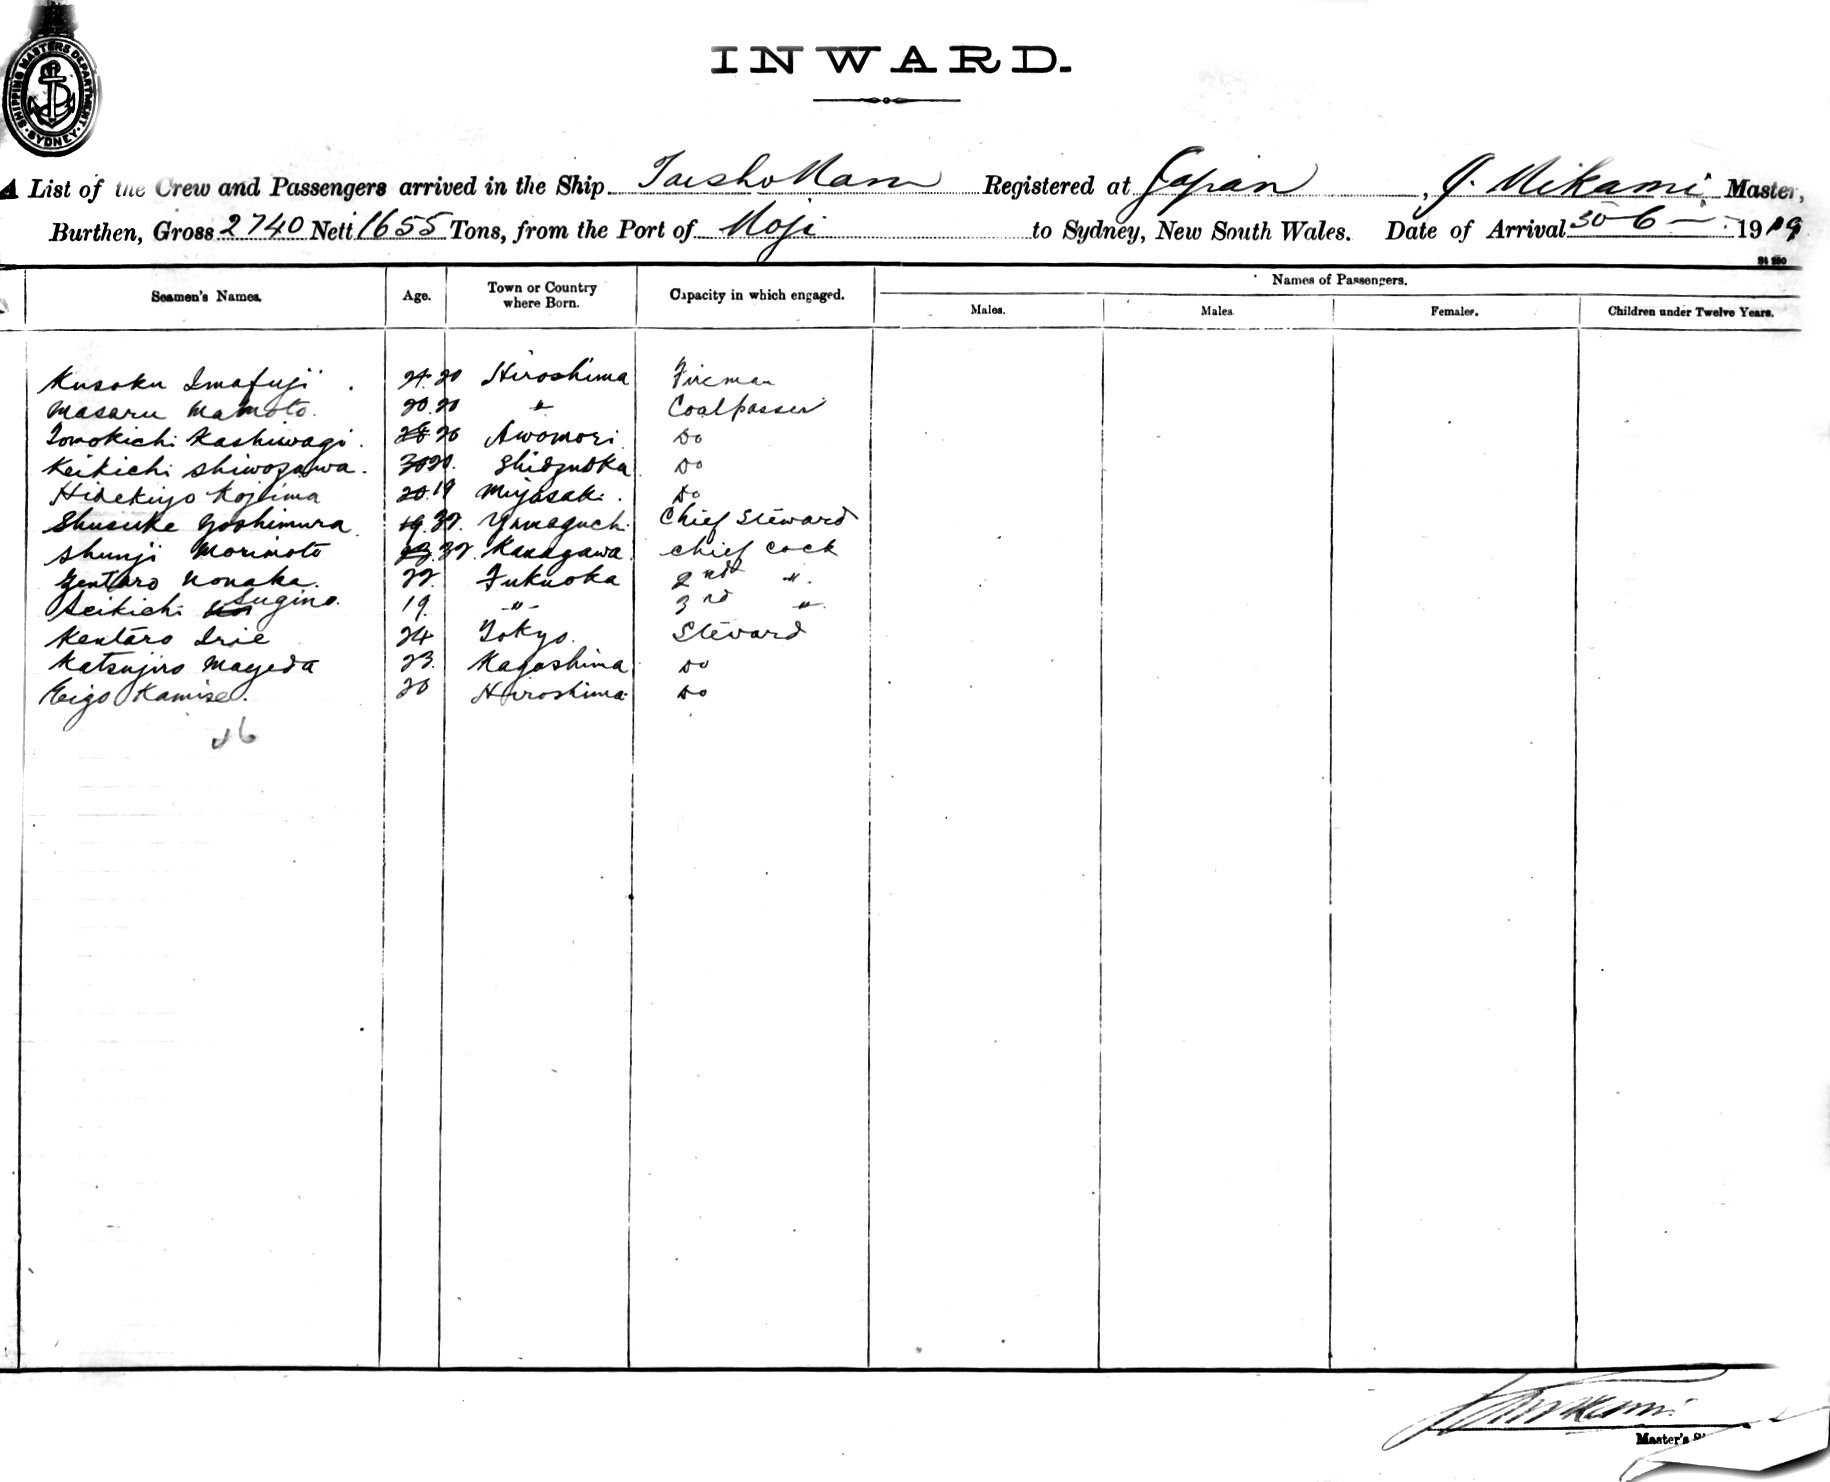 SHIPPING MASTERS DEPARTMENT
SYDNEY
INWARD.
A List of the Crew and Passengers arrived in the Ship Taisho Maru Registered at Japan, J. Mikami Master,
Burthen, Gross 2740 Nett 1655 Tons, from the Port of Moji to Sydney, New South Wales. Date of Arrival 30-6- 1919
Seamen's Names. Age. Town or Country where Born. Capacity in which engaged. Names of Passengers.
Males. Males. Females. Children under Twelve Years.
Kusaku Imafuji. 24. 20 Hiroshima Fireman
Masaru Mamoto. 20. 20 " Coalpasser
Tomokichi Kashiwagi. 26 Awomori Do
Keikichi Shiwozawa. 30 20. Shidzuoka Do
Hidekiyo Kojima 20. 19 Miyasaki. Do
Shusuke Yoshimura 19. 32. Yamaguchi Chief Steward
Shunji Morimoto 23. 32. Kanagawa Chief Cock
Gentaro Nonaka. 22. Fukuoka 2nd ".
Seikichi Sugino. 19. -"- 3rd ".
Kentaro Irie 24 Tokyo. Steward
Katsujiro Mayeda 23. Kagoshima Do
Eigo Kamise. 20 Hiroshima Do
46
Master's